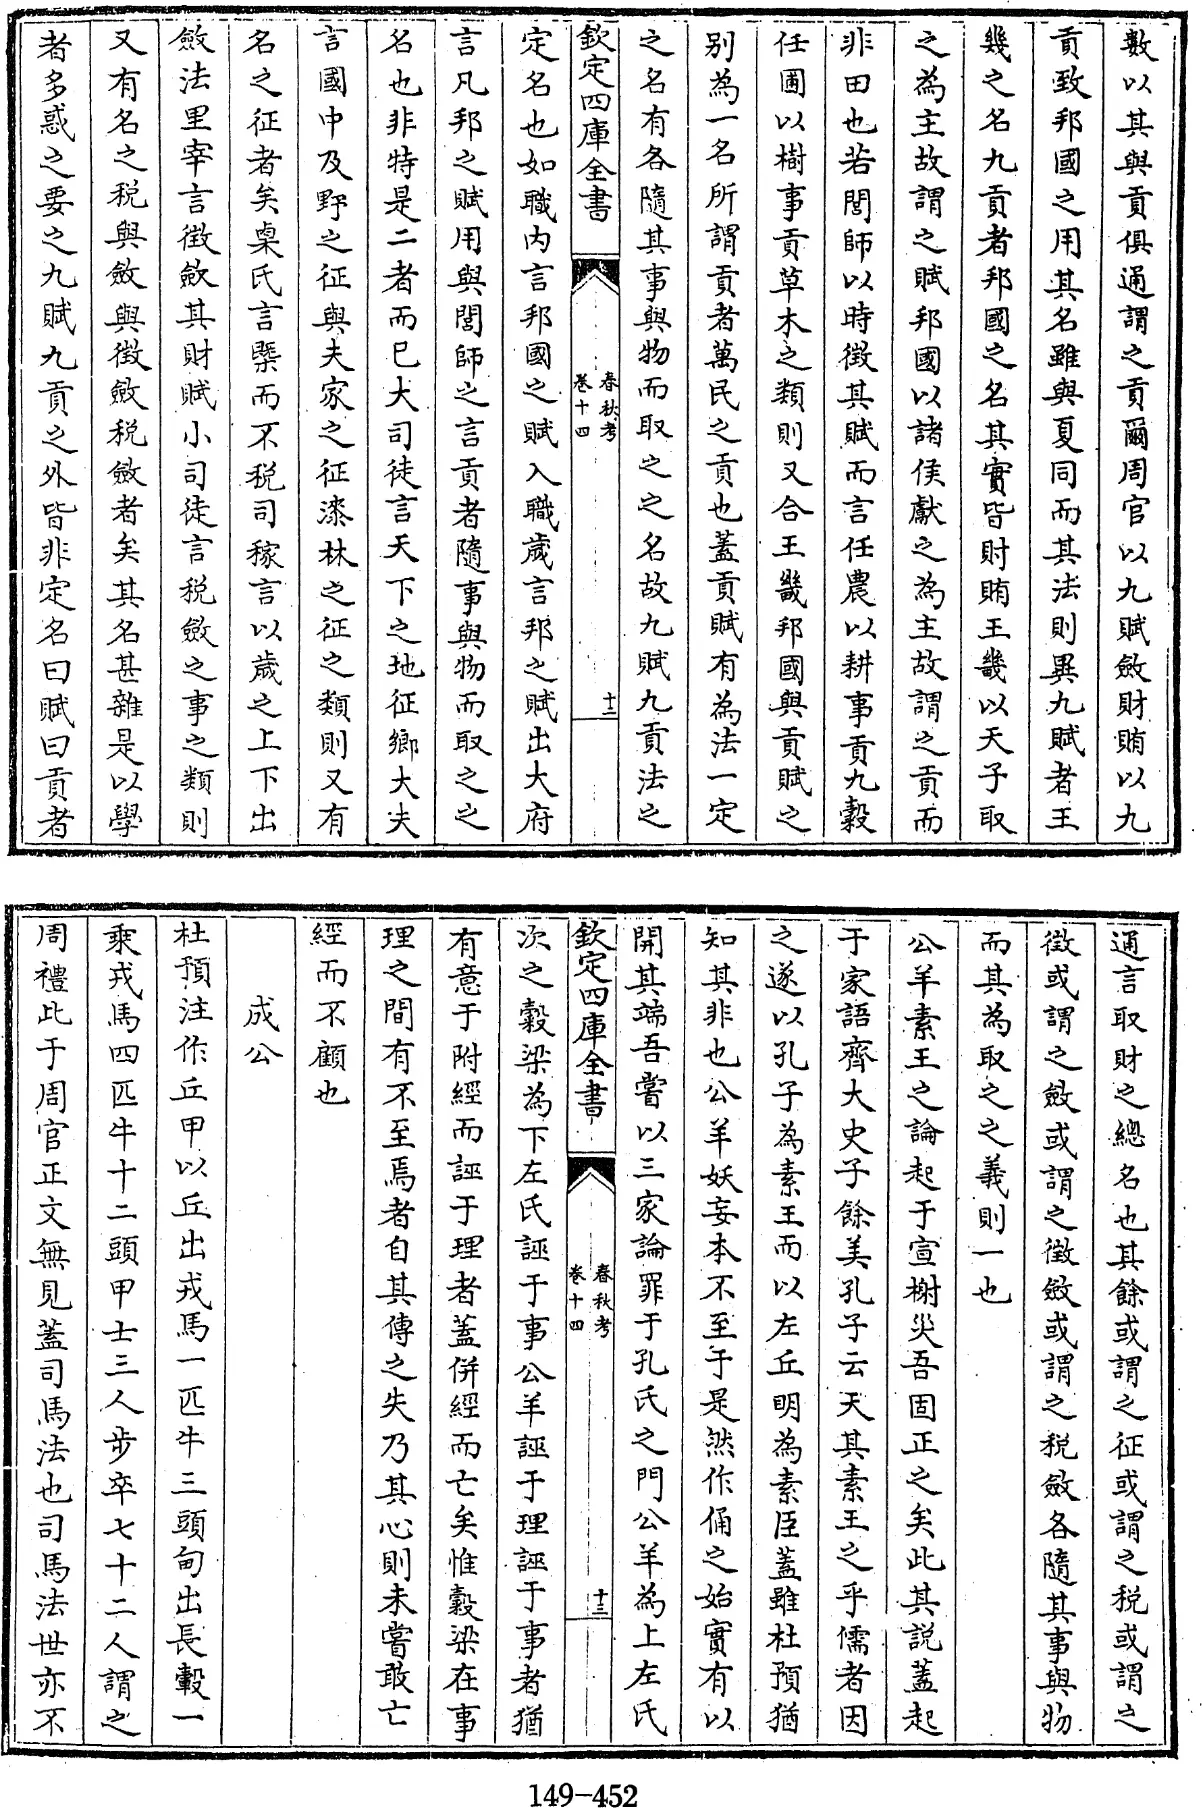 數以其與貢俱通謂之貢爾周官以九賦斂財賄以九
貢致邦國之用其名雖與夏同而其法則異九賦者王
幾之名九貢者邦國之名其實皆財賄王畿以天子取
之為主故謂之賦邦國以諸侯獻之為主故謂之貢而
非田也若閭師以時徴其賦而言任農以耕事貢九穀
任圃以樹事貢草木之類則又合王畿邦國與貢賦之
别為一名所謂貢者萬民之貢也蓋貢賦有為法一定
之名有各隨其事與物而取之之名故九賦九貢法之
欽定四庫全書
春秋考
卷十四
十二
定名也如職内言邦國之賦入職歲言邦之賦出大府
言凡邦之賦用與閭師之言貢者隨事與物而取之之
名也非特是二者而已大司徒言天下之地征鄉大夫
言國中及野之征與夫家之征漆林之征之類則又有
名之征者矣㮚氏言槩而不税司稼言以歲之上下出
斂法里宰言徴斂其財賦小司徒言税斂之事之類則
又有名之税與斂與徴斂税斂者矣其名甚雜是以學
者多惑之要之九賦九貢之外皆非定名曰賦曰貢者
通言取財之總名也其餘或謂之征或謂之税或謂之
徴或謂之斂或謂之徴斂或謂之税斂各隨其事與物
而其為取之之義則一也
公羊素王之論起于宣榭災吾固正之矣此其説蓋起
于家語齊大史子餘美孔子云天其素王之乎儒者因
之遂以孔子為素王而以左丘明為素臣蓋雖杜預猶
知其非也公羊妖妄本不至于是然作俑之始實有以
開其端吾嘗以三家論罪于孔氏之門公羊為上左氏
欽定四庫全書
春秋考
卷十四
十三
次之穀梁為下左氏誣于事公羊誣于理誣于事者猶
有意于附經而誣于理者蓋併經而亡矣惟穀梁在事
理之間有不至焉者自其傳之失乃其心則未嘗敢亡
經而不顧也
成公
杜預注作丘甲以丘出戎馬一匹牛三頭甸出長轂一
乘戎馬四匹牛十二頭甲士三人步卒七十二人謂之
周禮此于周官正文無見蓋司馬法也司馬法世亦不
149-452